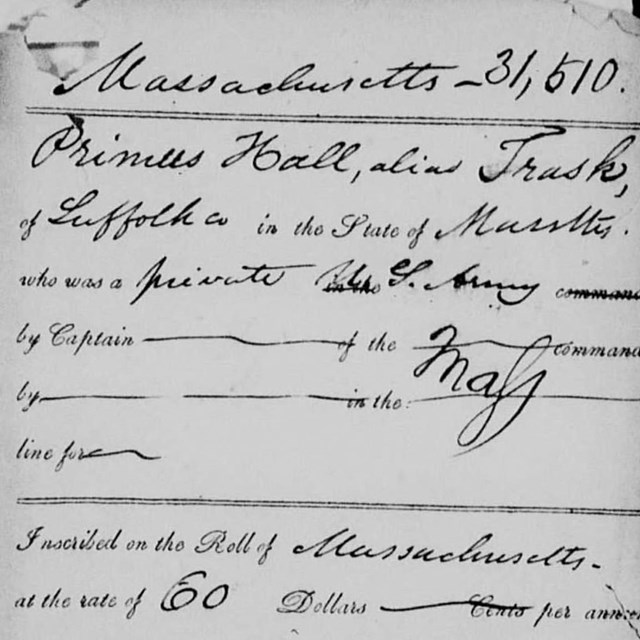 Massachusetts - 31,510.
Primus Hall, alias Trask,
of Suffolk co in the State of Massetts.
who was a private U. S. Army command
by Captain of the command
by in the Mass
line for
Inscribed on the Roll of Massachusetts-
at the rate of 60 Dollars Cents per ann